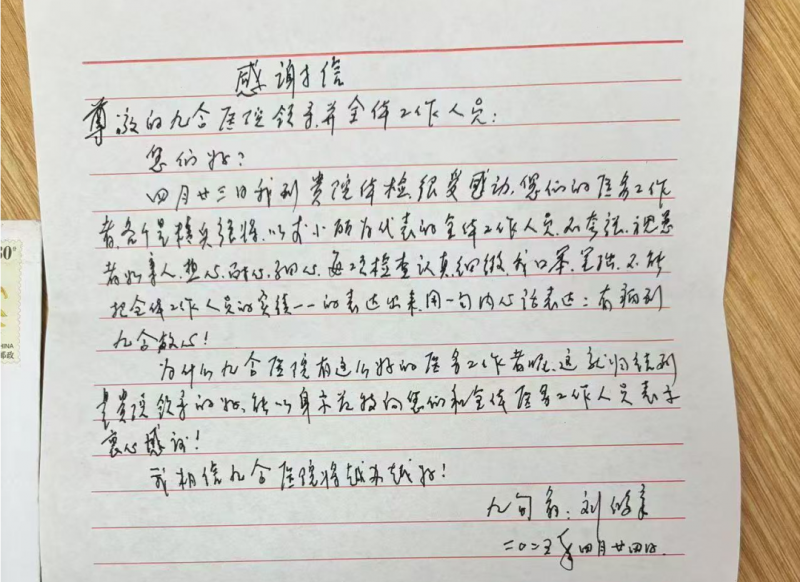 感谢信
尊敬的九合医院领导并全体工作人员：
您们好？
四月廿三日我到贵院体检，很受感动，您们的医务工作
者，各个是精兵强将，以求小丽为代表的全体工作人员，不夸张，视患
者如亲人，热心、耐心、细心，每项检查认真细微，我口笨，笔拙，不能
把全体工作人员的实绩一一的表达出来，用一句内心话表达：有病到
九合放心！
为什么九合医院有这么好的医务工作者呢，这就归结到
是贵院领导的好，能以身示范特向您们和全体医务工作人员表示
衷心感谢！
我相信九合医院将越来越好！
九旬翁：刘
二〇二五年四月廿四日
80
CHINA
邮政